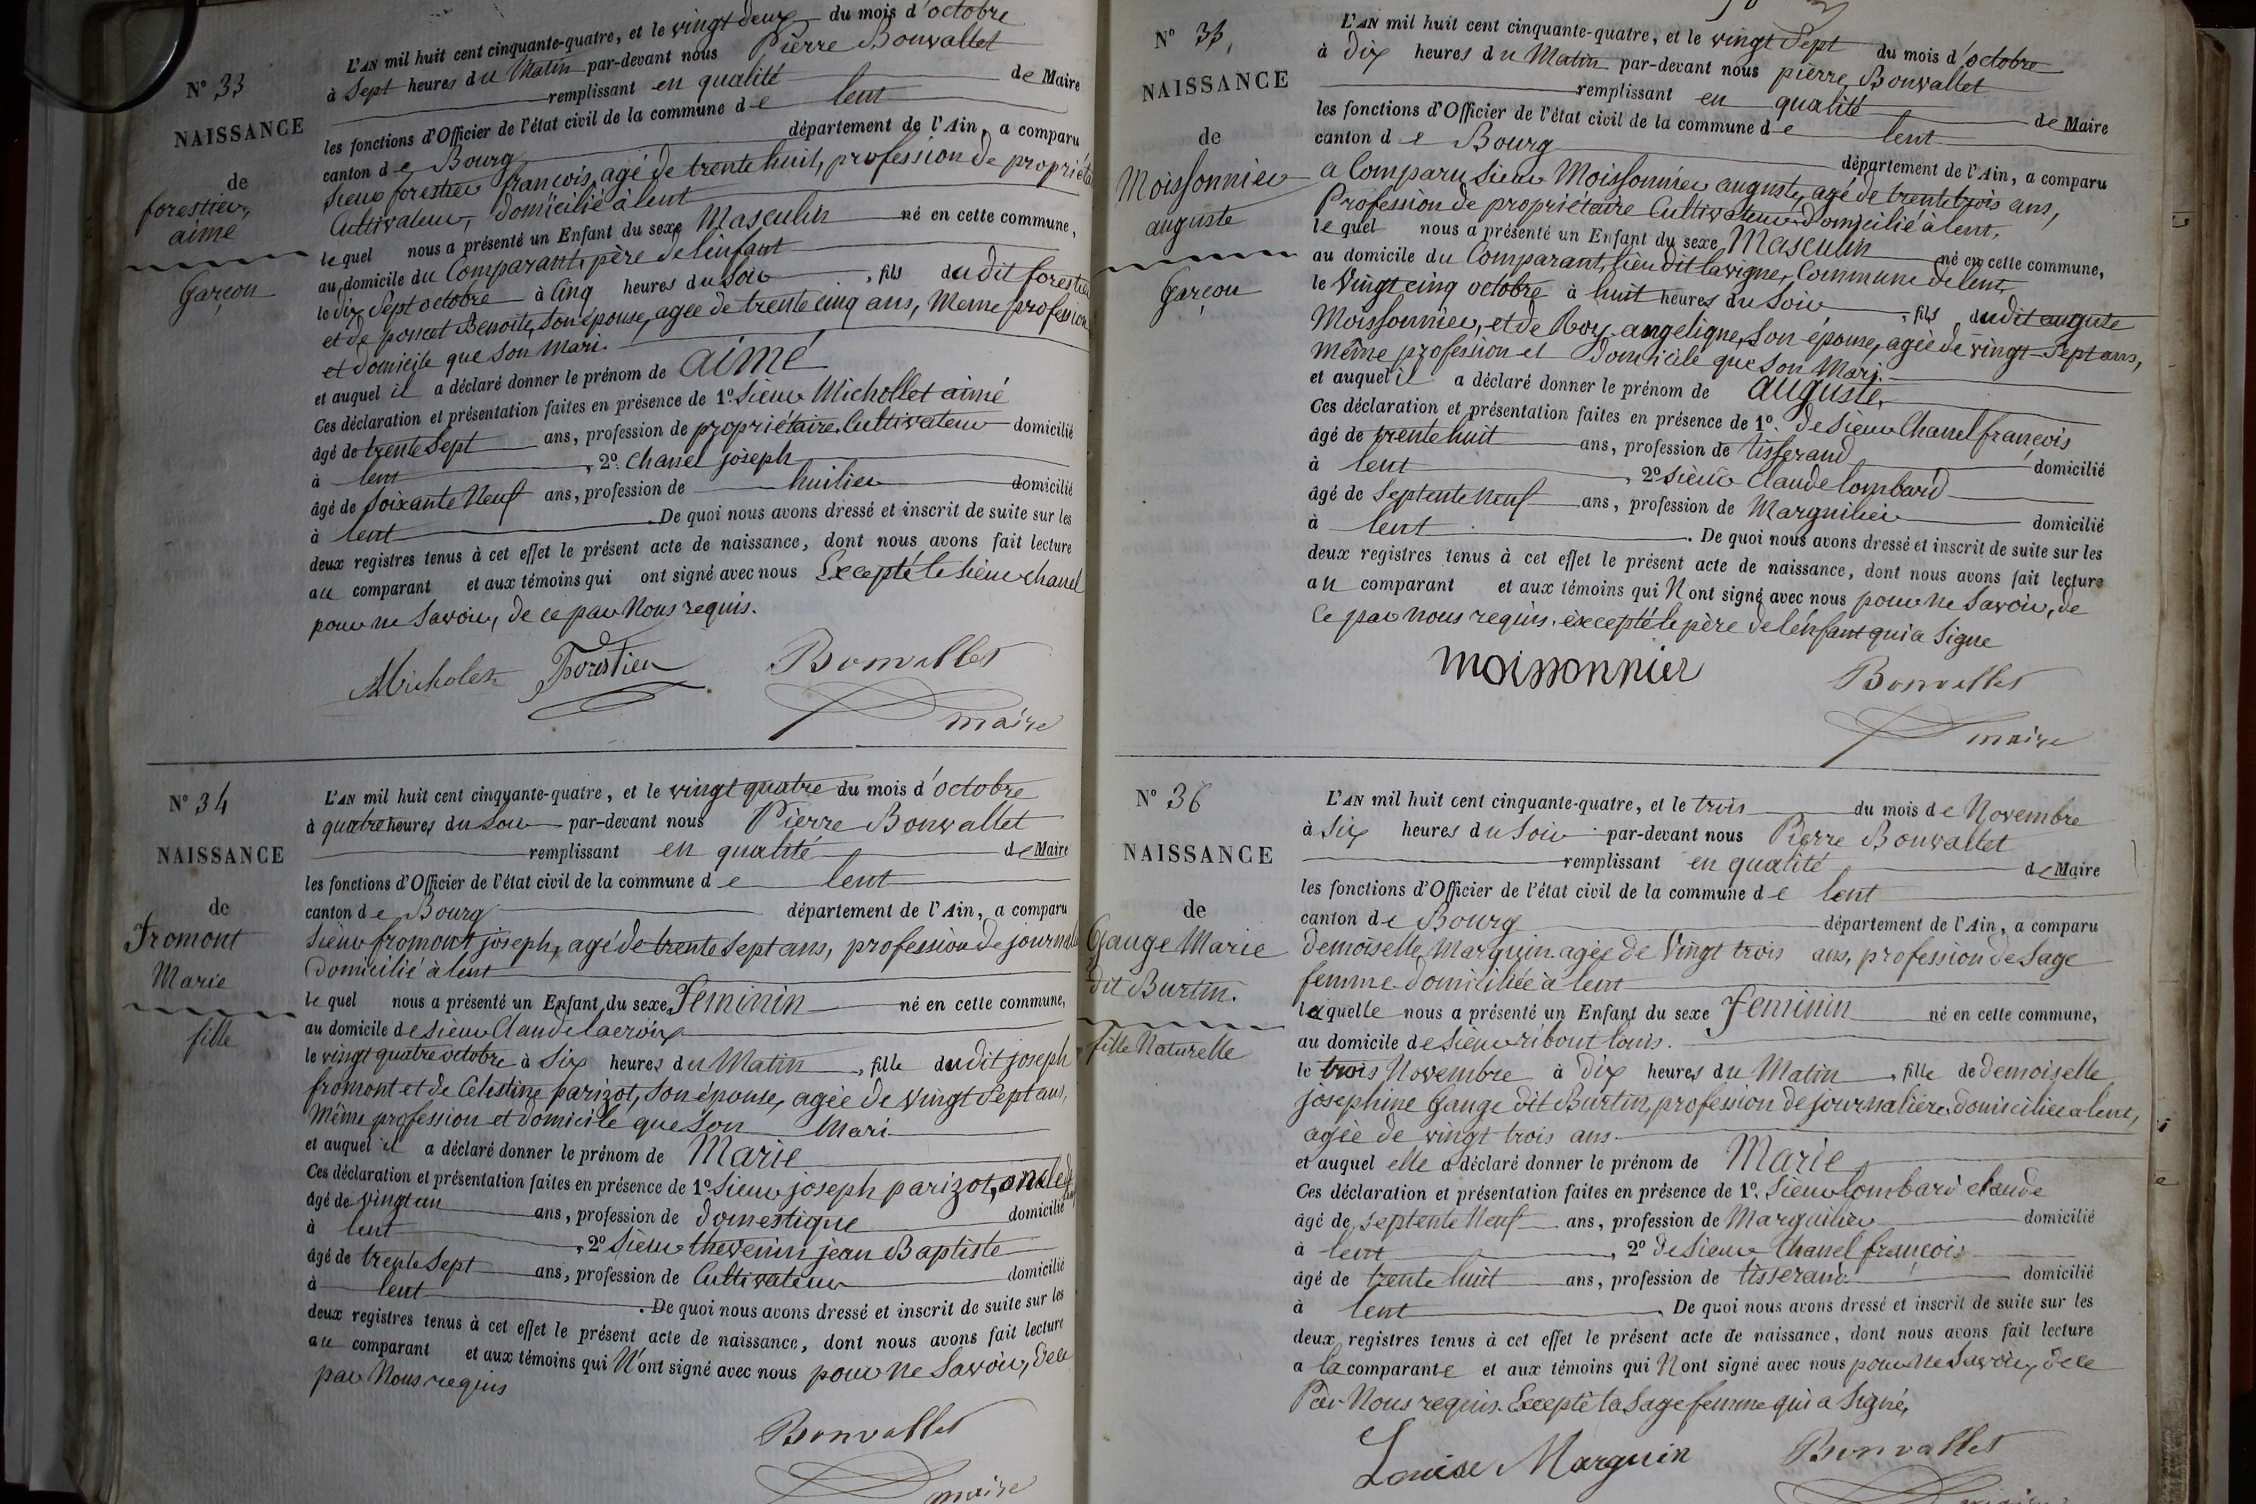 N° 33
NAISSANCE
de
forestier,
aimé
Garçon
L'AN mil huit cent cinquante-quatre, et le vingt deux du mois d'octobre
à Sept heures du Matin par-devant nous Pierre Bonvallet
remplissant en qualité de Maire
les fonctions d'Officier de l'état civil de la commune de lent
canton de Bourg département de l'Ain, a comparu
Sieur forestier francois, agé de trente huit, profession de propriéta
Cultivateur, domicilié à lent
lequel nous a présenté un Enfant du sexe Masculin né en cette commune,
au domicile du Comparant, père de l'enfant
le dix Sept octobre à Cinq heures du Soir, fils du dit forestier
et de poncet Benoite, Son épouse, agée de trente cinq ans, Même profession
et domicile que Son Mari.
et auquel il a déclaré donner le prénom de aimé
Ces déclaration et présentation faites en présence de 1° Sieur Michollet aimé
âgé de trente Sept ans, profession de propriétaire Cultivateur domicilié
à lent, 2° Chanel joseph
âgé de Soixante Neuf ans, profession de huilier domicilié
à lent. De quoi nous avons dressé et inscrit de suite sur les
deux registres tenus à cet effet le présent acte de naissance, dont nous avons fait lecture
au comparant et aux témoins qui ont signé avec nous Excepté le Sieur Chanel
pour ne Savoir, de ce par Nous requis.
Micholet Forestier Bonvallet
maire
N° 34
NAISSANCE
de
Fromont
Marie
fille
L'AN mil huit cent cinquante-quatre, et le vingt quatre du mois d'octobre
à quatre heures du Soir par-devant nous Pierre Bonvallet
remplissant en qualité de Maire
les fonctions d'Officier de l'état civil de la commune de lent
canton de Bourg département de l'Ain, a comparu
Sieur fromont joseph, agé de trente Sept ans, profession de journali
Domicilié à lent
lequel nous a présenté un Enfant du sexe Feminin né en cette commune,
au domicile de Sieur Claude lacroix
le vingt quatre octobre à Six heures du Matin, fille du dit joseph
fromont et de Celestine parizot, Son épouse, agée de vingt Sept ans,
Même profession et domicile que Son Mari
et auquel il a déclaré donner le prénom de Marie
Ces déclaration et présentation faites en présence de 1° Sieur joseph parizot, oncle
âgé de vingt un ans, profession de domestique domicilié
à lent, 2° Sieur thevenin jean Baptiste
âgé de trente Sept ans, profession de Cultivateur domicilié
à lent. De quoi nous avons dressé et inscrit de suite sur les
deux registres tenus à cet effet le présent acte de naissance, dont nous avons fait lecture
au comparant et aux témoins qui N'ont signé avec nous pour ne Savoir, de ce
par Nous requis
Bonvallet
maire
N° 35,
NAISSANCE
de
Moissonnier
auguste
Garçon
L'AN mil huit cent cinquante-quatre, et le vingt Sept du mois d'octobre
à Dix heures du Matin par-devant nous pierre Bonvallet
remplissant en qualité de Maire
les fonctions d'Officier de l'état civil de la commune de lent
canton de Bourg département de l'Ain, a comparu
a Comparu Sieur Moissonnier auguste, agé de trente trois ans,
Profession de propriétaire Cultivateur Domicilié à lent,
lequel nous a présenté un Enfant du sexe Masculin né en cette commune,
au domicile du Comparant, lieu dit lavigne, Commune de lent,
le Vingt cinq octobre à huit heures du Soir, fils du dit auguste
Moissonnier, et de Roy angelique, Son épouse, agée de vingt Sept ans,
Même profession et domicile que Son Mari.
et auquel il a déclaré donner le prénom de auguste,
Ces déclaration et présentation faites en présence de 1°. de Sieur Chanel françois
âgé de trente huit ans, profession de tisserand domicilié
à lent, 2° Sieur Claude lombard
âgé de Septente Neuf ans, profession de Marguilier domicilié
à lent. De quoi nous avons dressé et inscrit de suite sur les
deux registres tenus à cet effet le présent acte de naissance, dont nous avons fait lecture
au comparant et aux témoins qui N ont signé avec nous pour ne Savoir, de
Ce par nous requis. excepté le père de l'énfant qui a Signe
moissonnier Bonvallet
maire
N° 36
NAISSANCE
de
Gauge Marie
dit Burtin.
fille Naturelle
L'AN mil huit cent cinquante-quatre, et le trois du mois de Novembre
à Six heures du Soir par-devant nous Pierre Bonvallet
remplissant en qualité de Maire
les fonctions d'Officier de l'état civil de la commune de lent
canton de Bourg département de l'Ain, a comparu
demoiselle Marguin agée de Vingt trois ans, profession de Sage
femme Domiciliée à lent
laquelle nous a présenté un Enfant du sexe Feminin né en cette commune,
au domicile de Sieur ribout louis.
le trois Novembre à Dix heures du Matin, fille de demoiselle
josephine Gauge dit Burtin, profession de journalière domiciliée a lent,
agée de vingt trois ans
et auquel elle a déclaré donner le prénom de Marie
Ces déclaration et présentation faites en présence de 1°. Sieur lombard claude
âgé de septente Neuf ans, profession de Marguilier domicilié
à lent, 2° de Sieur Chanel françois
âgé de trente huit ans, profession de tisserand domicilié
à lent. De quoi nous avons dressé et inscrit de suite sur les
deux registres tenus à cet effet le présent acte de naissance, dont nous avons fait lecture
a la comparante et aux témoins qui N ont signé avec nous pour ne Savoir, de ce
Par Nous requis. Excepté la Sage femme qui a Signé,
Louise Marguin Bonvallet